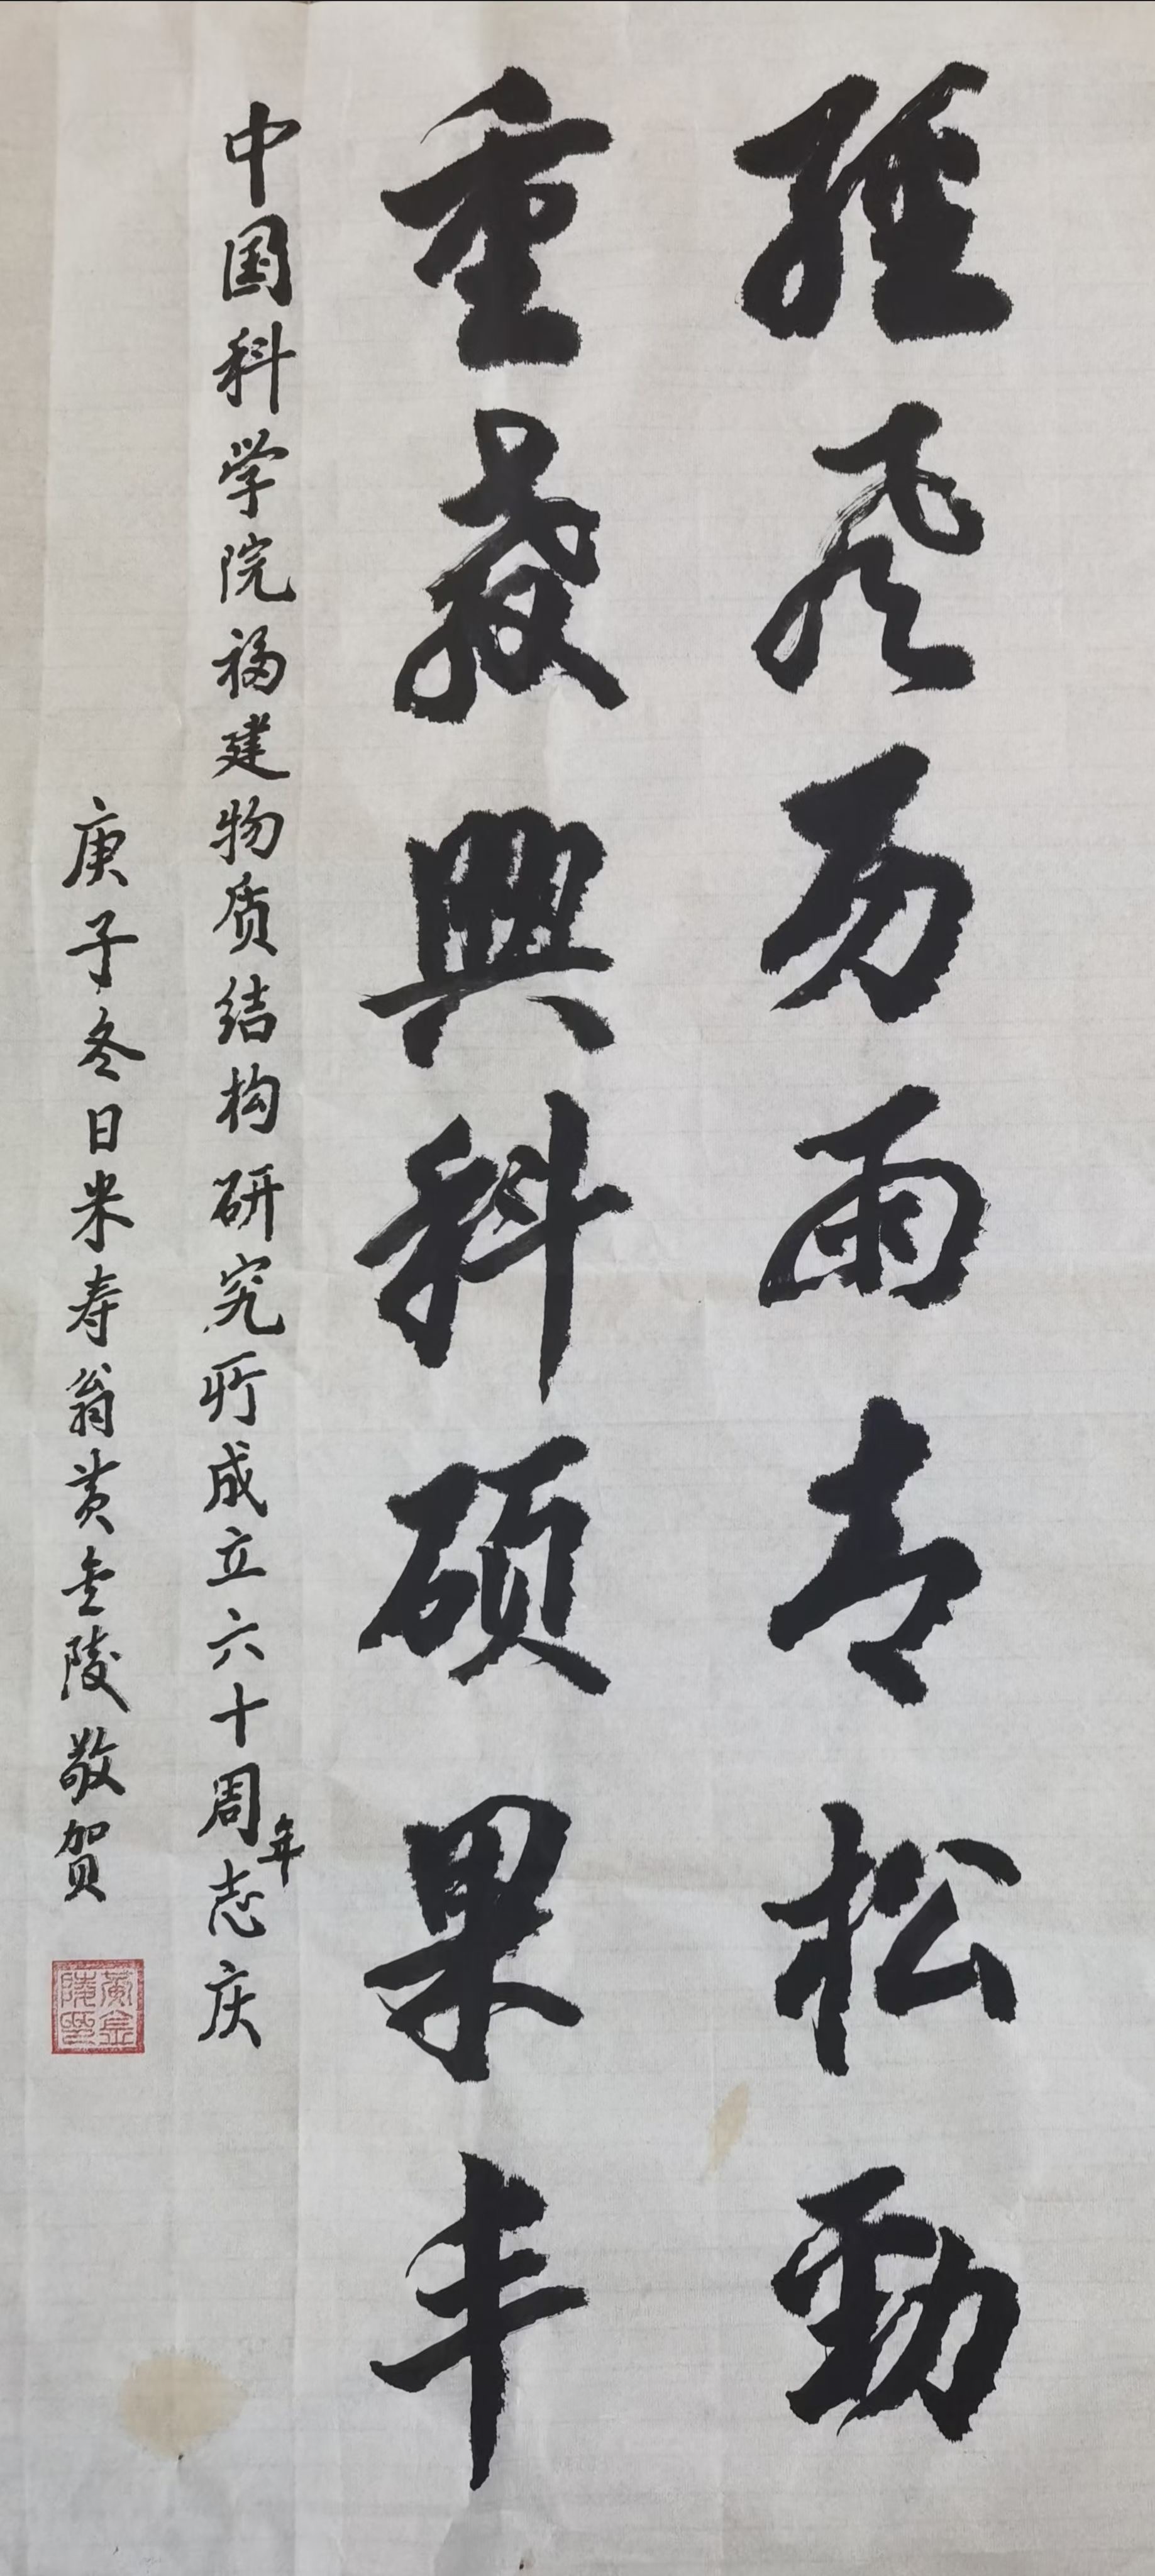 經风历雨青松劲
重教興科硕果丰
中国科学院福建物质结构研究所成立六十周年志庆
庚子冬日米寿翁黄金陵敬贺
黄金陵印